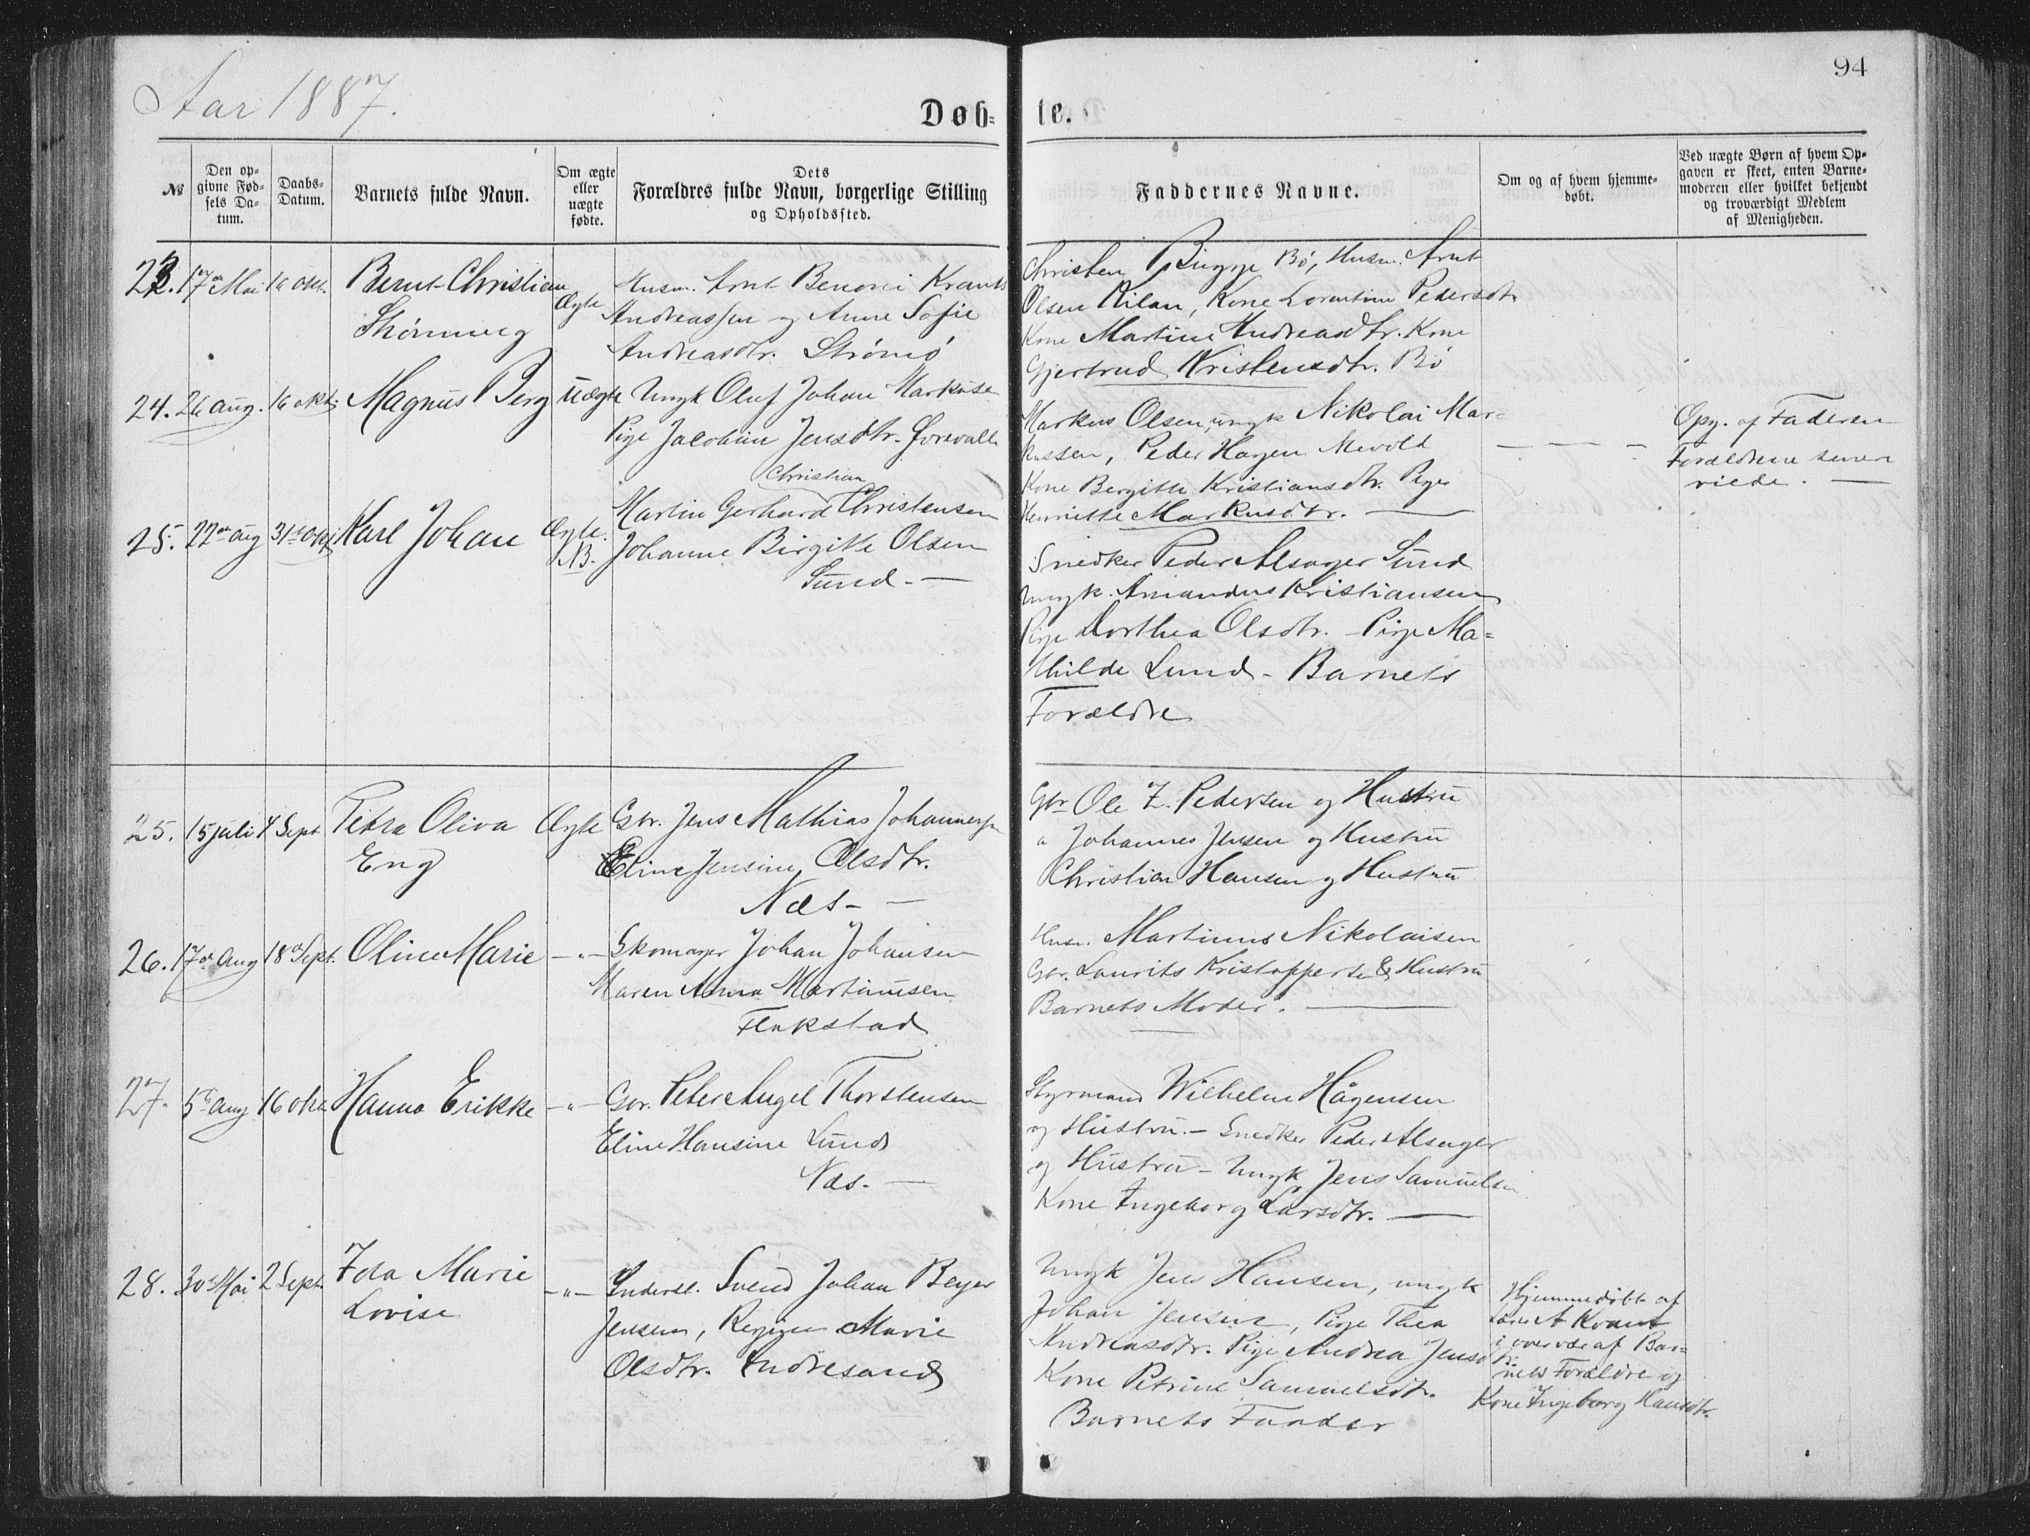 Aar 1887.
94
Døb-
te.
№
Den op-
givne Fød-
sels Da-
tum.
Daabs-
Datum.
Barnets fulde Navn.
Om ægte
eller
uægte
fødte.
Dets
Forældres fulde Navn, borgerlige Stilling
og Opholdssted.
Faddernes Navne.
Om og af hvem hjemme-
døbt.
Ved uægte Børn af hvem Op-
gaven er skeet, enten Barne-
moderen eller hvilket bekjendt
og troværdigt Medlem
af Menigheden.
23. 17de Mai 16 okt. Bernt Christian
Strømmeg
Ægte
Husm. Arnt Benoni Krants
Andreassen og Anne Sofie
Andreasdtr. Strømø
Christen Bugge Bø, Husm. Arnt
Olsen Kilan, Kone Lorentine Pedersdtr
Kone Martine Andreasdtr. Kone
Gjertrud Kristensdtr. Bø
24. 26 aug. 16 okt. Magnus Berg uægte
Ungk Oluf Johan Markuse
Pige Jacobine Jensdtr.
Markus Olsen, ungk Nikolai Mar-
kussen, Peder Hagen Mevold
Kone Bergitte Kristiansdtr. Pige
Henriette Markusdtr. —
Opg. af Faderen
Forældrene senere
viede. —
25. 22de aug 31te okt Karl Johan Ægte.
N.B.
Christian
Martin Gerhard Christensen
Johanne Birgitte Olsen
Sund. —
Snedker Peder Alsager Sund
Ungk. Amandus Kristiansen
Pige Dorthea Olsdtr. Pige Ma-
thilde Lund - Barnets
Forældre
25. 15 juli 4 Sept Petra Oliva
Eng
Ægte
Gbr. Jens Mathias Johannessen
Eline Jensine Olsdtr.
Næs - —
Gbr Ole Z. Pedersen og Hustru
" Johannes Jensen og Hustru
Christian Hansen og Hustru
26. 17de Aug 18de Sept. Oline Marie -"-
Skomager Johan Johansen
Maren Anna Martinusen
Flakstad
Husm. Martinus Nikolaisen
Gbr. Laurits Kristoffersen & Hustru
Barnets Moder. —
27. 5te aug 16 okt. Hanna Erikke -"-
Gbr. Peter Angel Thorstensen
Eline Hansine Lund
Næs. —
Styrmand Wilhelm Hågensen
og Hustru. - Snedker Peder Alsager
og Hustru - Ungk Jens Samuelsen
Kone Ingeborg Larsdtr. —
28. 30te Mai 2 Sept. Ida Marie
Lovise
-"-
Inderst. Svend Johan Beyer
Jensen, Regine Marie
Olsdtr. Indresand
Ungk Jens Hansen, ungk
Johan Jensen, Pige Thea
Andreasdtr. Pige Andrea Jensdtr.
Kone Petrine Samuelsdtr.
Barnets Fader
Hjemmedøbt af
Lærer A Krant
i overvær af Bar-
nets Forældre og
Kone Ingeborg Hansdtr.